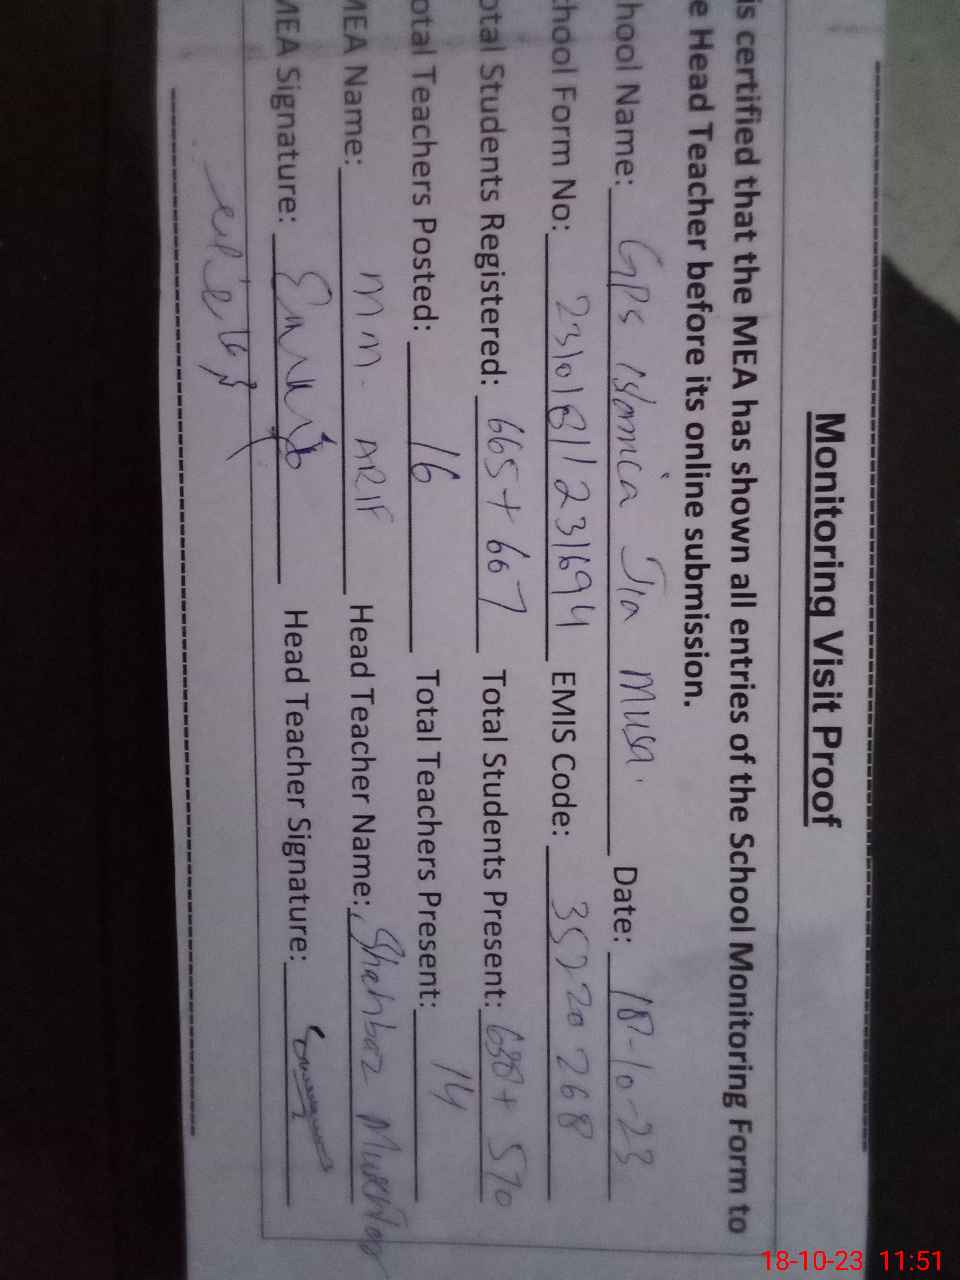 Monitoring Visit Proof
is certified that the MEA has shown all entries of the School Monitoring Form to
e Head Teacher before its online submission.
hool Name: GPS Islamia Jia Musa Date: 18-10-23
chool Form No: 23101811231694 EMIS Code: 35220268
otal Students Registered: 665+667 Total Students Present: 638+570
otal Teachers Posted: 16 Total Teachers Present: 14
MEA Name: M M. ARIF Head Teacher Name: Shahbaz
MEA Signature: Head Teacher Signature:
18-10-23 11:51